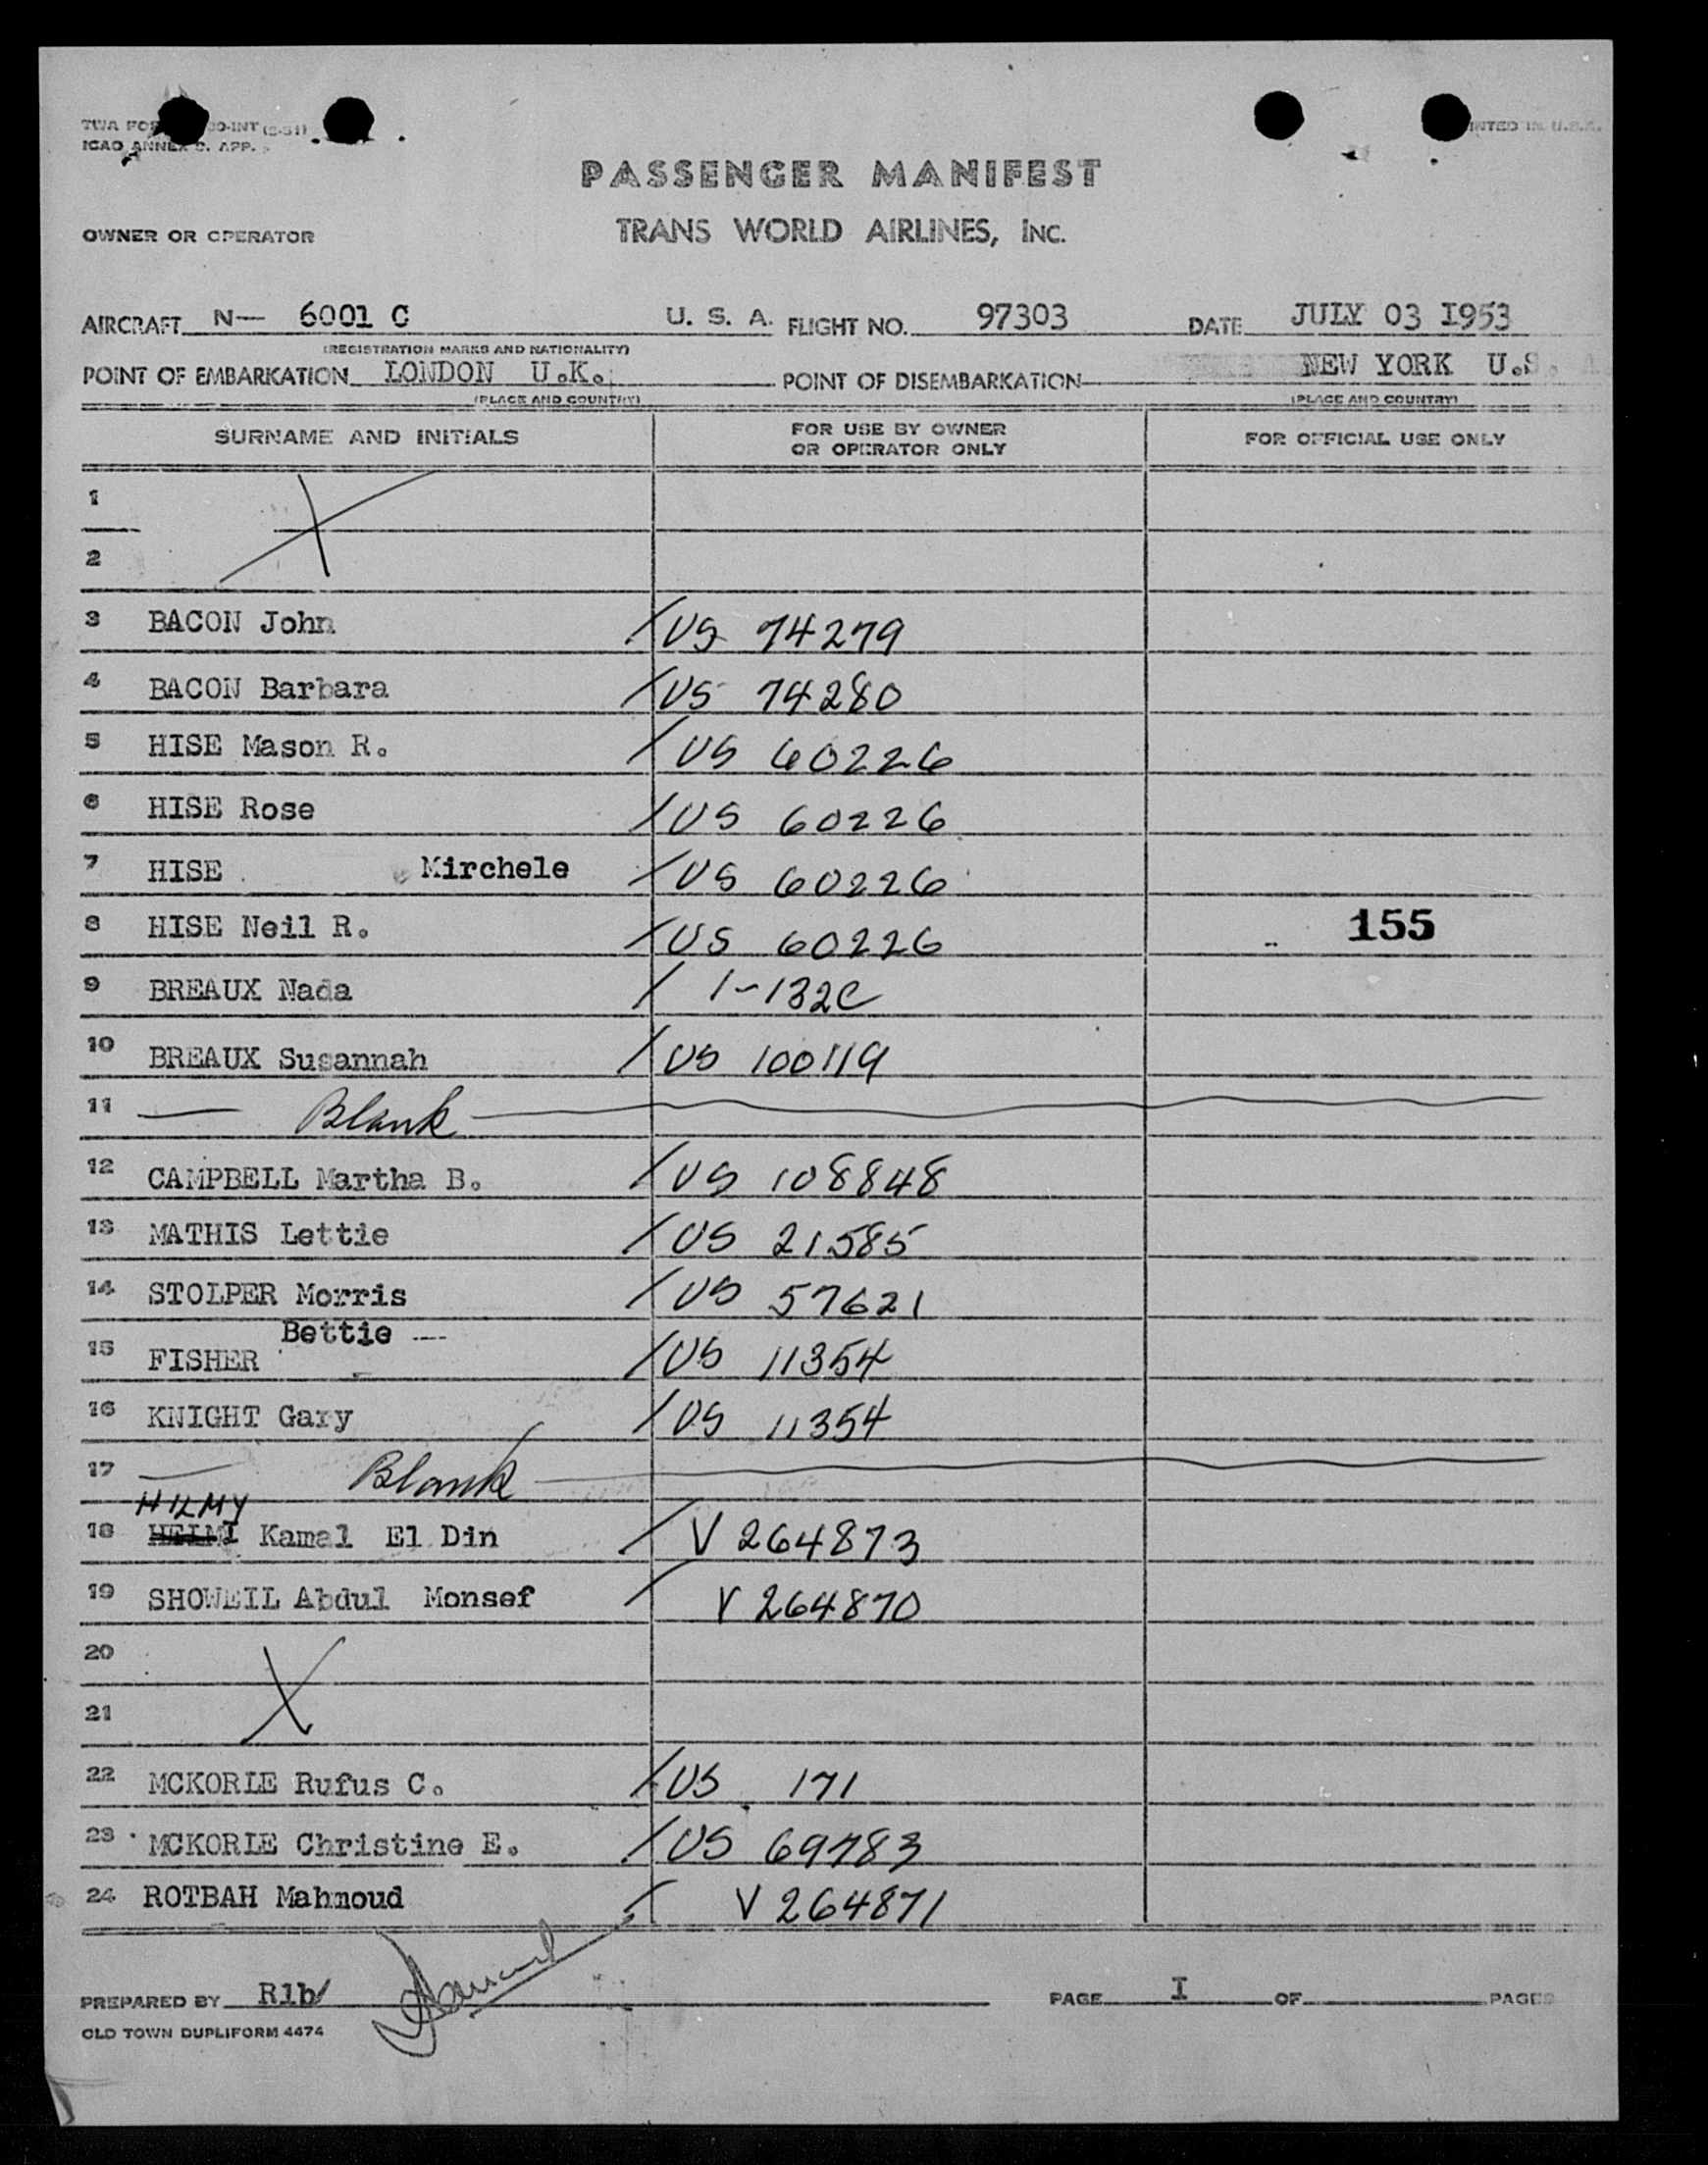 TWA FOR 00-INT (2-51)
ICAO ANNEX 9. APP.
PASSENGER MANIFEST
OWNER OR OPERATOR TRANS WORLD AIRLINES, INC.
AIRCRAFT N— 6001 C U. S. A. FLIGHT NO. 97303 DATE JULY 03 I953
(REGISTRATION MARKS AND NATIONALITY)
POINT OF EMBARKATION LONDON U.K. POINT OF DISEMBARKATION NEW YORK U.S. A
(PLACE AND COUNTRY) (PLACE AND COUNTRY)
SURNAME AND INITIALS FOR USE BY OWNER OR OPERATOR ONLY FOR OFFICIAL USE ONLY
1 X
2
3 BACON John / US 74279
4 BACON Barbara / US 74280
5 HISE Mason R. / US 60226
6 HISE Rose / US 60226
7 HISE Mirchele / US 60226
8 HISE Neil R. / US 60226 155
9 BREAUX Nada / 1-132C
10 BREAUX Susannah / US 100119
11 — Blank —
12 CAMPBELL Martha B. / US 108848
13 MATHIS Lettie / US 21585
14 STOLPER Morris / US 57621
Bettie ---
15 FISHER / US 11354
16 KNIGHT Gary / US 11354
17 — Blank —
HILMY
18 HELMI Kamal El Din / V 264873
19 SHOWEIL Abdul Monsef / V 264870
20 X
21
22 MCKORIE Rufus C. / US 171
23 MCKORIE Christine E. / US 69783
24 ROTBAH Mahmoud / V 264871
PREPARED BY Rlb/ PAGE I OF PAGES
OLD TOWN DUPLIFORM 4474